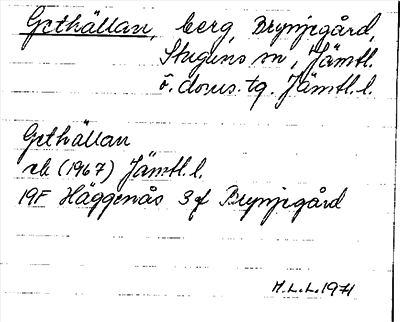 Gethällan, berg, Brynjegård,
Stuguns sn, Jämtl.
ö. doms. tg. Jämtl. l.
Gethällan
ek (1967) Jämtl. l.
19F Häggenås 3 f Brynjegård
M.L.L. 1971